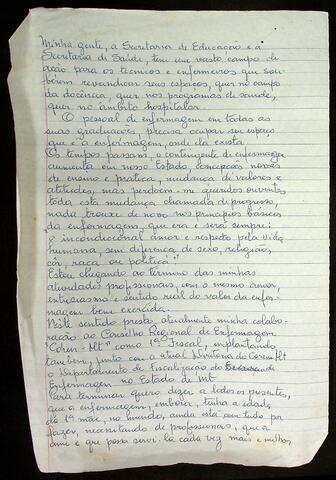 Minha gente, a Secretaria de Educação e a
Secretaria de Saúde, tem um vasto campo de
ação para os técnicos e enfermeiros que sou-
berem reivindicar seus espaços, quer no campo
da docência, quer nos programas de saúde,
quer no âmbito hospitalar.
O pessoal de enfermagem em todas as
suas graduações, precisa ocupar seu espaço
que é a enfermagem, onde ela exista
Os tempos passam, o contingente de enfermagem
aumenta em nosso Estado, concepções novas
de ensino e prática, mudança de valores e
atitudes, mas perdoem-me queridos ouvintes
toda esta mudança chamada de progresso,
nada trouxe de novo nos princípios básicos
da enfermagem, que era e será sempre:
o incondicional amor e respeito pela vida
humana, sem diferença de sexo, religião,
côr, raça ou política"
Estou chegando ao término das minhas
atividades profissionais, com o mesmo amor,
entusiasmo e sentido real do valor da enfer-
magem bem exercida.
Neste sentido presto, atualmente minha colabo-
ração ao Conselho Regional de Enfermagem
Coren-Mt" como 1ª Fiscal, implantando
também, junto com a atual Diretoria do Coren Mt
o Departamento de Fiscalização do
Enfermagem no Estado de Mt
Para terminar quero dizer a todos os presentes,
que a enfermagem, embora, tenha a idade
da 1ª mãe, no mundo, ainda está com tudo por
fazer, necessitando de profissionais, que a
ame e que possa servi-la cada vez mais e melhor,